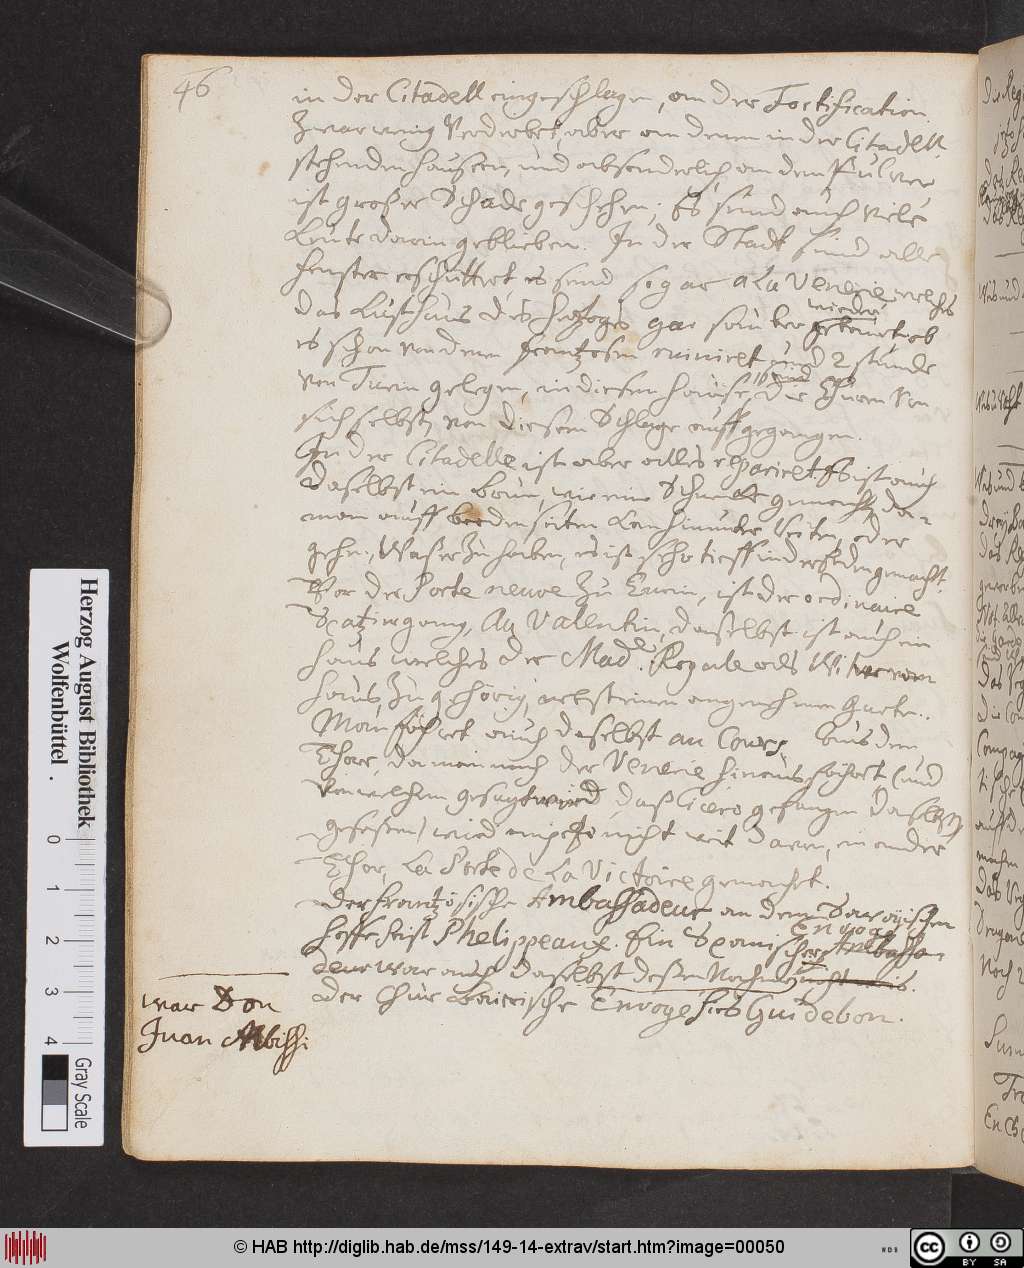 46
in der Citadell eingeschlagen, an der Fortification
zwar wenig verderbet, aber an denen in der Citadell
stehenden häusern, und absonderlich an dem Pulver
ist großer Schade geschehen; Es sind auch viele
Leute darin geblieben. In der Stadt sind alle
fenster erschüttert, es sind sogar a La Venerie welches
das Lusthaus des Hertzoges gar sauber wieder gebauet ob
es schon von denen frantzosen ruiniert und 2 stunde
von Turin gelegen, in diesem hause, die Thüren von
sich selbst von diesem Schlage auffgegangen.
In der Citadelle ist aber alles repariert. Es ist auch
daselbst ein brun, wie eine Schnecke gemacht, da
man auff beeden seiten kan hinunter Reiten, oder
gehen, Waßer zu haben, es ist sehr tieff in der Erden gemacht.
Vor der Porte neuve zu Turin, ist der ordinaire
Spatziergang, Au Vallentin, daselbst ist auch ein
haus welches der Mad.e Royale als Witwen
haus, zugehörig, nebst einem angenehmen Garten.
Man fähret auch daselbst au Cours. Aus dem
Thor, da man nach der Venerie hinaus fähret (und
von welchem gesagt wird, daß Cicero gefangen daselbst
geseßen) wird anjetzo nicht weit davon, ein ander
Thor, La Porte de La Victoire gemacht.
Der frantzösische Ambassadeur an dem Savoyischen
Hoffe heist Phelippeaux. Ein Spanischer Envoye Ambassa
deur war auch daselbst deßen Nahme nicht weis.
Der Chur Baierische Envoye hies Guidebon.
war Don
Juan Albissi
Herzog August Bibliothek
Wolfenbüttel
0 1 2 3 4
Gray Scale
© HAB http://diglib.hab.de/mss/149-14-extrav/start.htm?image=00050
cc
BY SA